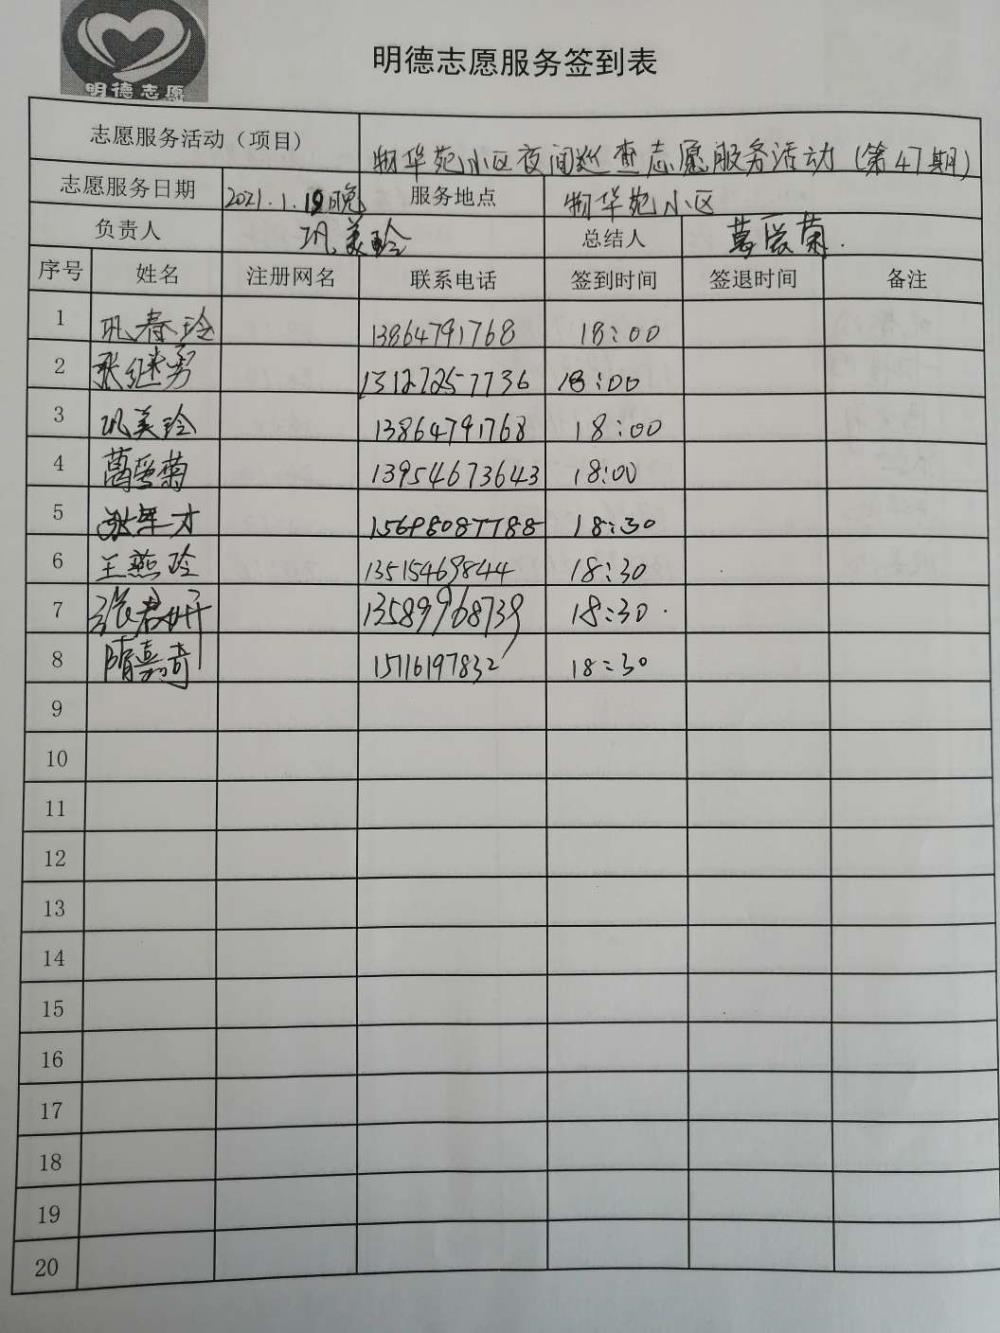 明德志愿
明德志愿服务签到表
志愿服务活动（项目） 物华苑小区夜间巡查志愿服务活动（第47期）
志愿服务日期 2021.1.19晚 服务地点 物华苑小区
负责人 巩美玲 总结人 葛爱菊.
序号 姓名 注册网名 联系电话 签到时间 签退时间 备注
1 巩春玲 13864791768 18:00
2 张继勇 13127257736 18:00
3 巩美玲 13864791768 18:00
4 葛爱菊 13954673643 18:00
5 才 15698087788 18:30
6 王燕玲 13515469844 18:30
7 张君妍 13589968739 18:30
8 隋嘉奇 15116197832 18:30
9
10
11
12
13
14
15
16
17
18
19
20